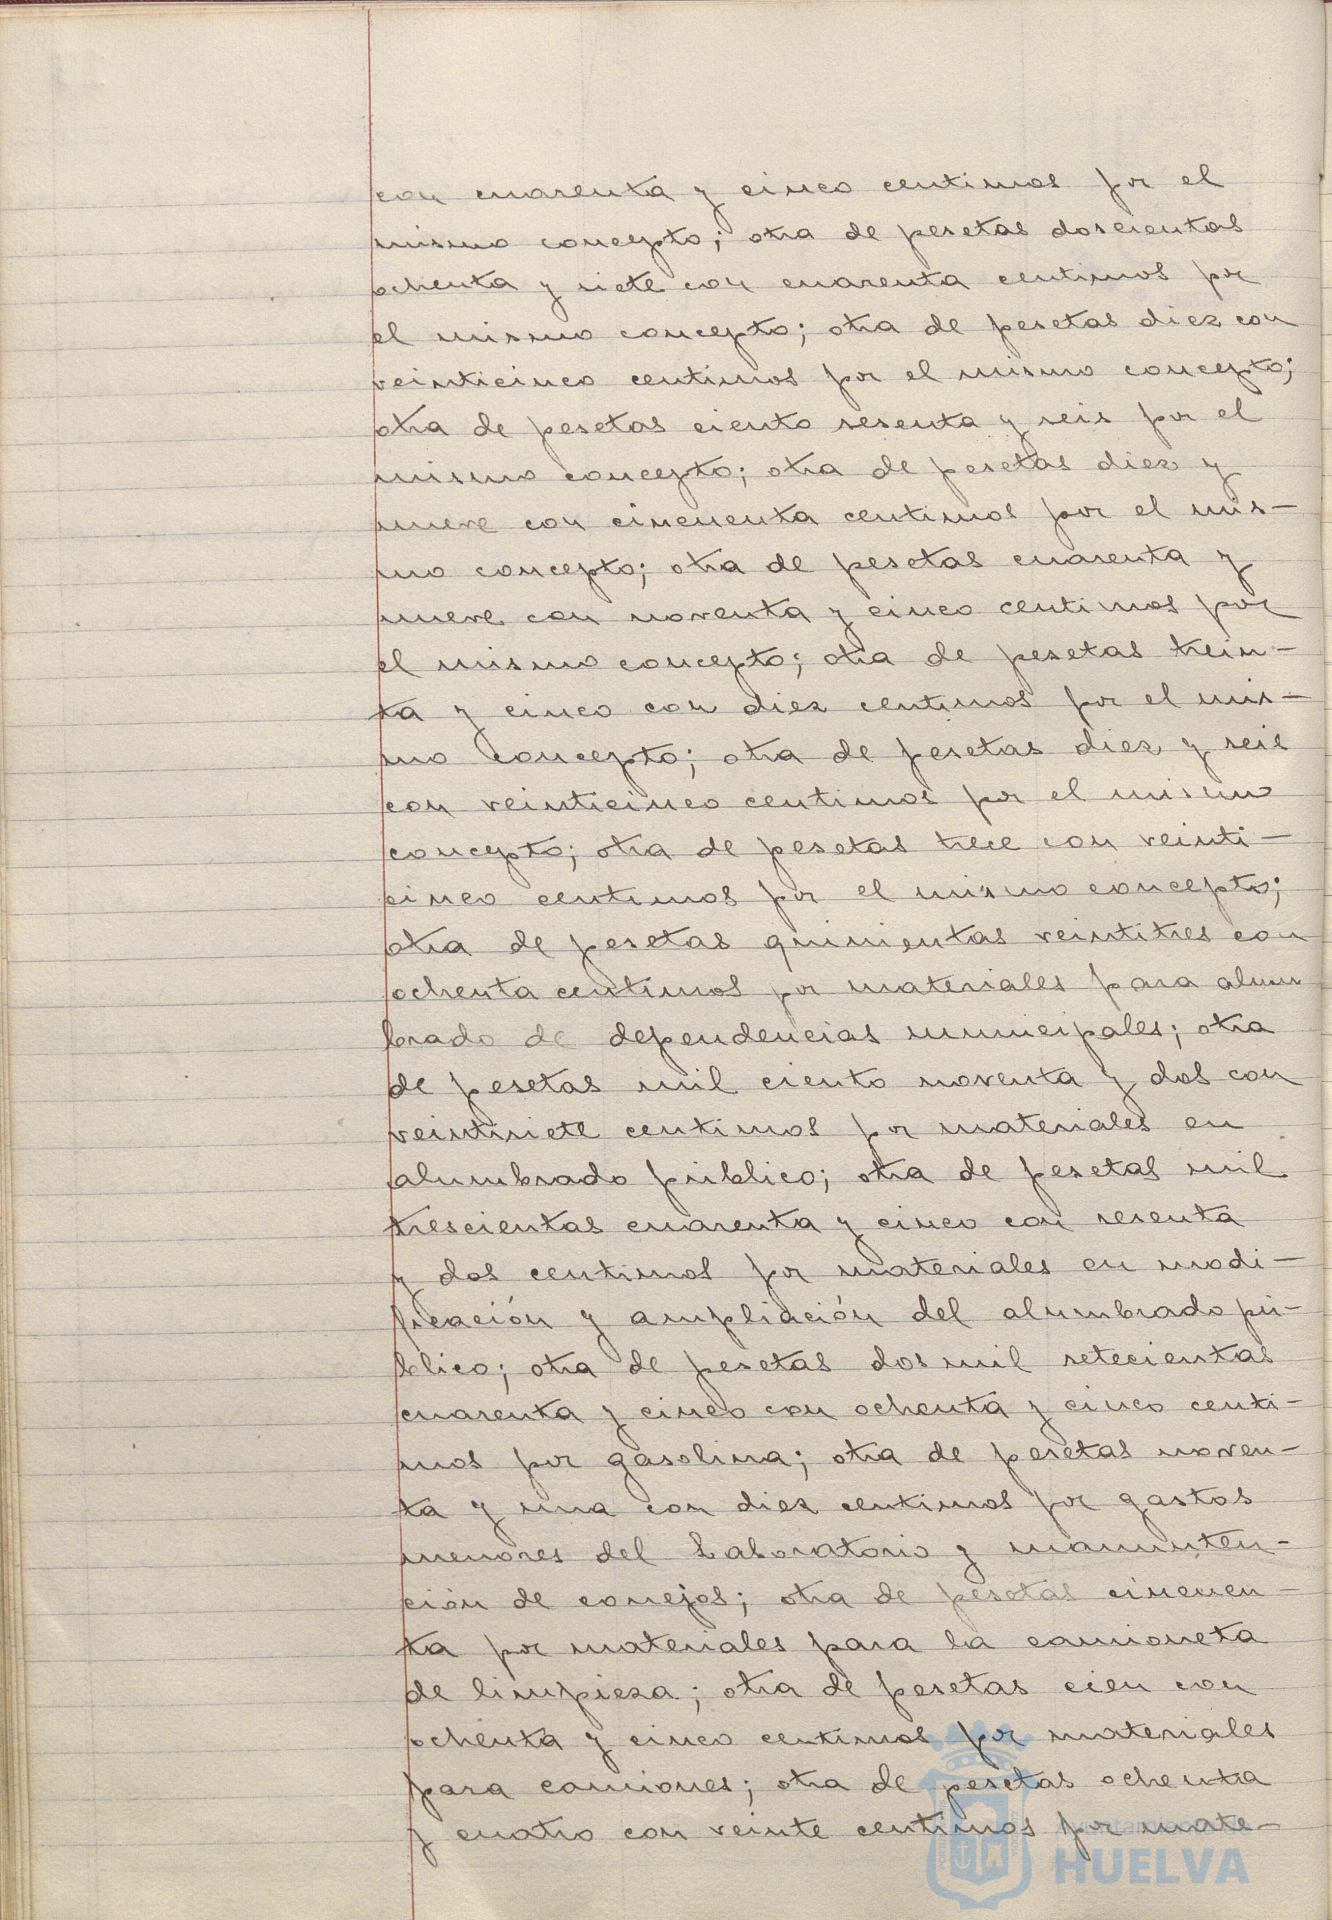 con cuarenta y cinco centimos por el
mismo concepto; otra de pesetas doscientas
ochenta y siete con cuarenta centimos por
el mismo concepto; otra de pesetas diez con
veinticinco centimos por el mismo concepto;
otra de pesetas ciento sesenta y seis por el
mismo concepto; otra de pesetas diez y
nueve con cincuenta centimos por el mis-
mo concepto; otra de pesetas cuarenta y
nueve con noventa y cinco centimos por
el mismo concepto; otra de pesetas trein-
ta y cinco con diez centimos por el mis-
mo concepto; otra de pesetas diez y seis
con veinticinco centimos por el mismo
concepto; otra de pesetas trece con veinti-
cinco centimos por el mismo concepto;
otra de pesetas quinientas veintitres con
ochenta centimos por materiales para alum
brado de dependencias municipales; otra
de pesetas mil ciento noventa y dos con
veintisiete centimos por materiales en
alumbrado público; otra de pesetas mil
trescientas cuarenta y cinco con sesenta
y dos centimos por materiales en modi-
ficación y ampliación del alumbrado pú-
blico; otra de pesetas dos mil setecientas
cuarenta y cinco con ochenta y cinco centi-
mos por gasolina; otra de pesetas noven-
ta y una con diez centimos por gastos
menores del Laboratorio y manuten-
ción de conejos; otra de pesetas cincuen-
ta por materiales para la camioneta
de limpieza; otra de pesetas cien con
ochenta y cinco centimos por materiales
para camiones; otra de pesetas ochenta
y cuatro con veinte centimos por mate-
Ayuntamiento de
HUELVA